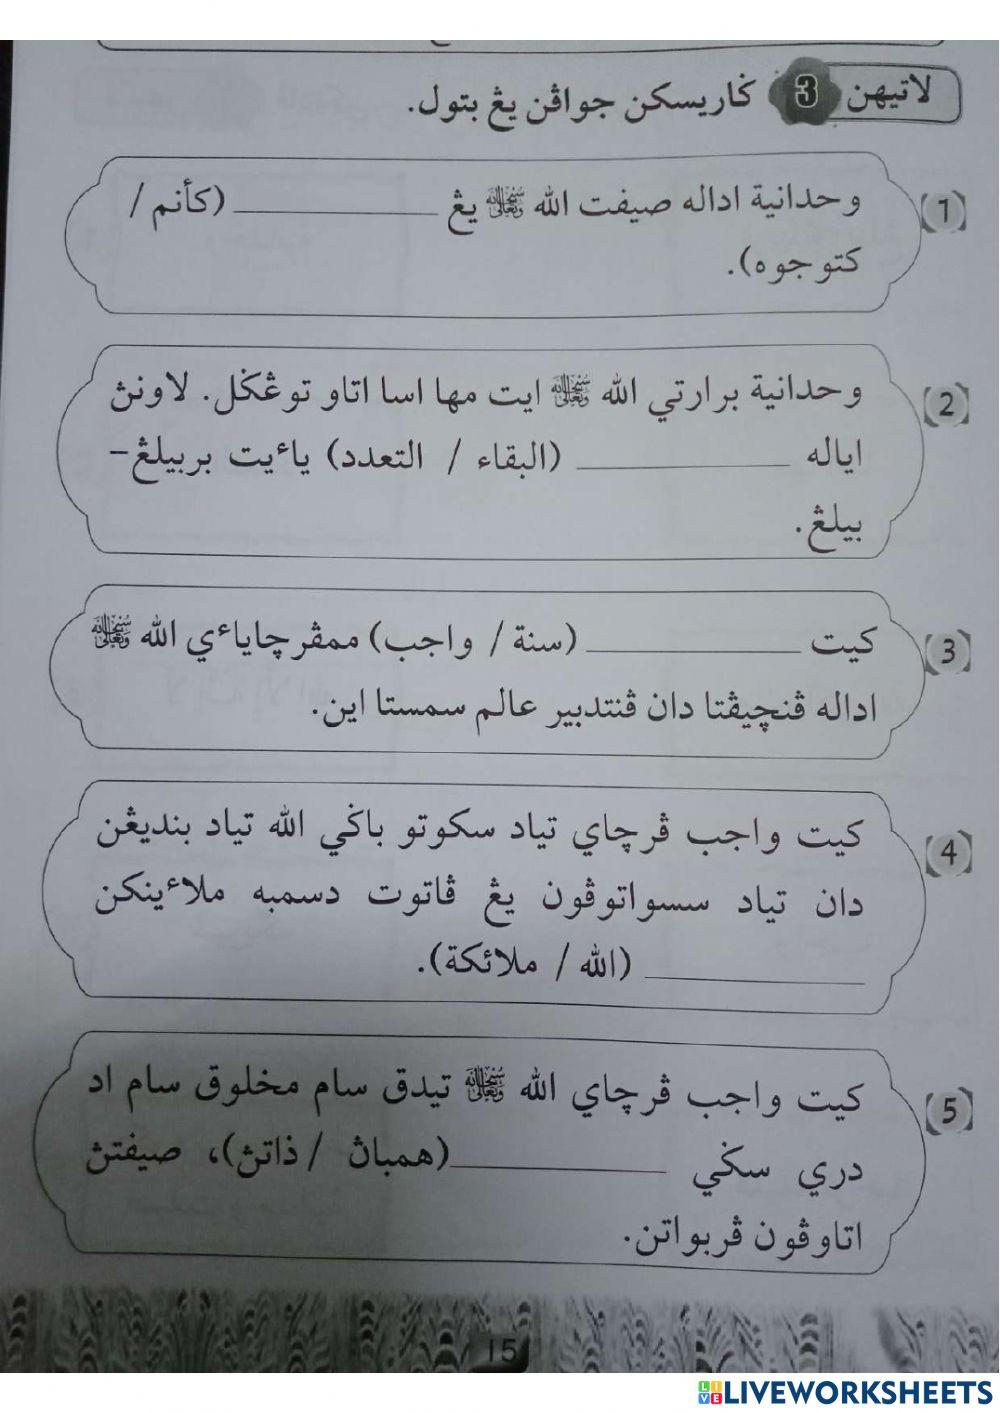 لاتيهن 3 ݢاريسکن جواڤن يڠ بتول.
(1) وحدانية اداله صيفت الله ﷾ يڠ ____________ (كأنم /
كتوجوه).
(2) وحدانية برارتي الله ﷾ ايت مها اسا اتاو توڠݢل. لاونڽ
اياله ____________ (البقاء / التعدد) ياءيت بربيلڠ-
بيلڠ.
(3) كيت ____________ (سنة / واجب) ممڤرچاياءي الله ﷾
اداله ڤنچيڤتا دان ڤنتدبير عالم سمستا اين.
(4) كيت واجب ڤرچاي تياد سكوتو باݢي الله تياد بنديڠن
دان تياد سسواتوڤون يڠ ڤاتوت دسمبه ملاءينكن
____________ (الله / ملائكة).
(5) كيت واجب ڤرچاي الله ﷾ تيدق سام مخلوق سام اد
دري سݢي ____________ (همباڽ / ذاتڽ)، صيفتڽ
اتاوڤون ڤربواتن.
15
LIVEWORKSHEETS